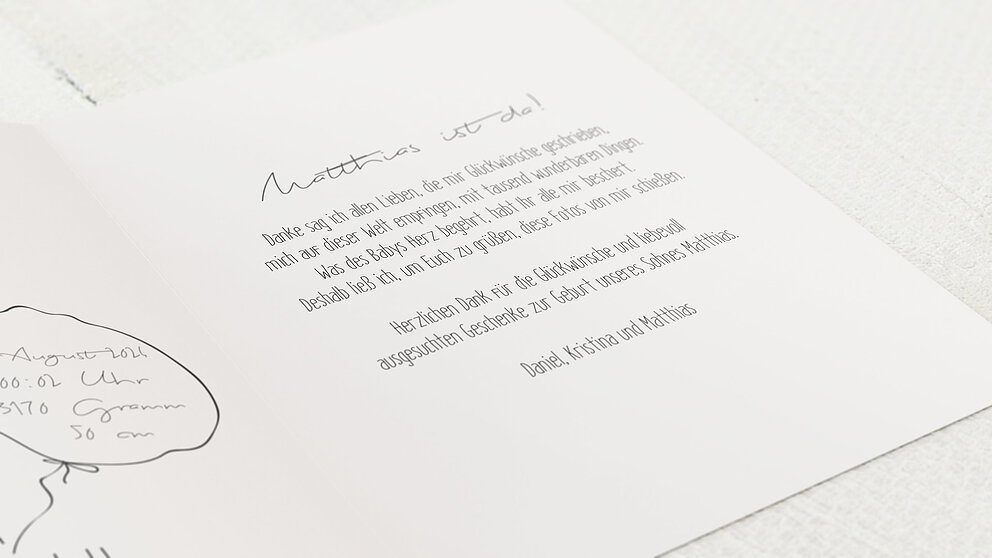 August
00:02 Uhr
3170 Gramm
50 cm
Matthias ist da!
Danke sag ich allen Lieben, die mir Glückwünsche geschrieben,
mich auf dieser Welt empringen, mit tausend wunderbaren Dingen.
Was des Babys Herz begehrt, habt Ihr alle mir beschert.
Deshalb ließ ich, um Euch zu grüßen, diese Fotos von mir schießen.
Herzlichen Dank für die Glückwünsche und liebevoll
ausgesuchten Geschenke zur Geburt unseres Sohnes Matthias.
Daniel, Kristina und Matthias